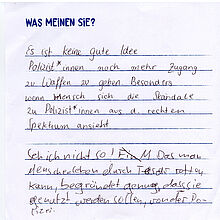 WAS MEINEN SIE?
Es ist keine gute Idee
Polizist*innen noch mehr Zugang
zu Waffen zu geben. Besonders
wenn Mensch sich die Skandale
zu Polizist*innen aus d. rechten
Spektrum ansieht.
Seh ich nicht so! Das man
Menschenleben durch Taser retten
kann, begründet genug, dass sie
genutzt werden sollen, von der Po-
lizei.